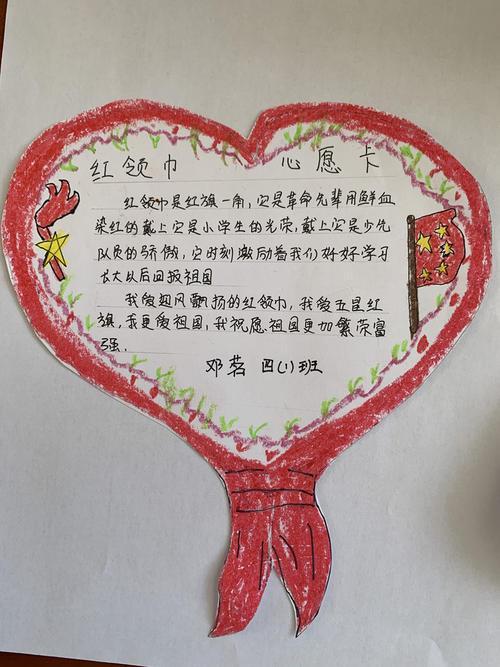 红领巾 心愿卡
红领巾是红旗一角，它是革命先辈用鲜血
染红的戴上它是小学生的光荣，戴上它是少先
队员的骄傲，它时刻激励着我们好好学习
长大以后回报祖国
我爱迎风飘扬的红领巾，我爱五星红
旗，我更爱祖国，我祝愿祖国更加繁荣富
强．
邓茗 四（1）班